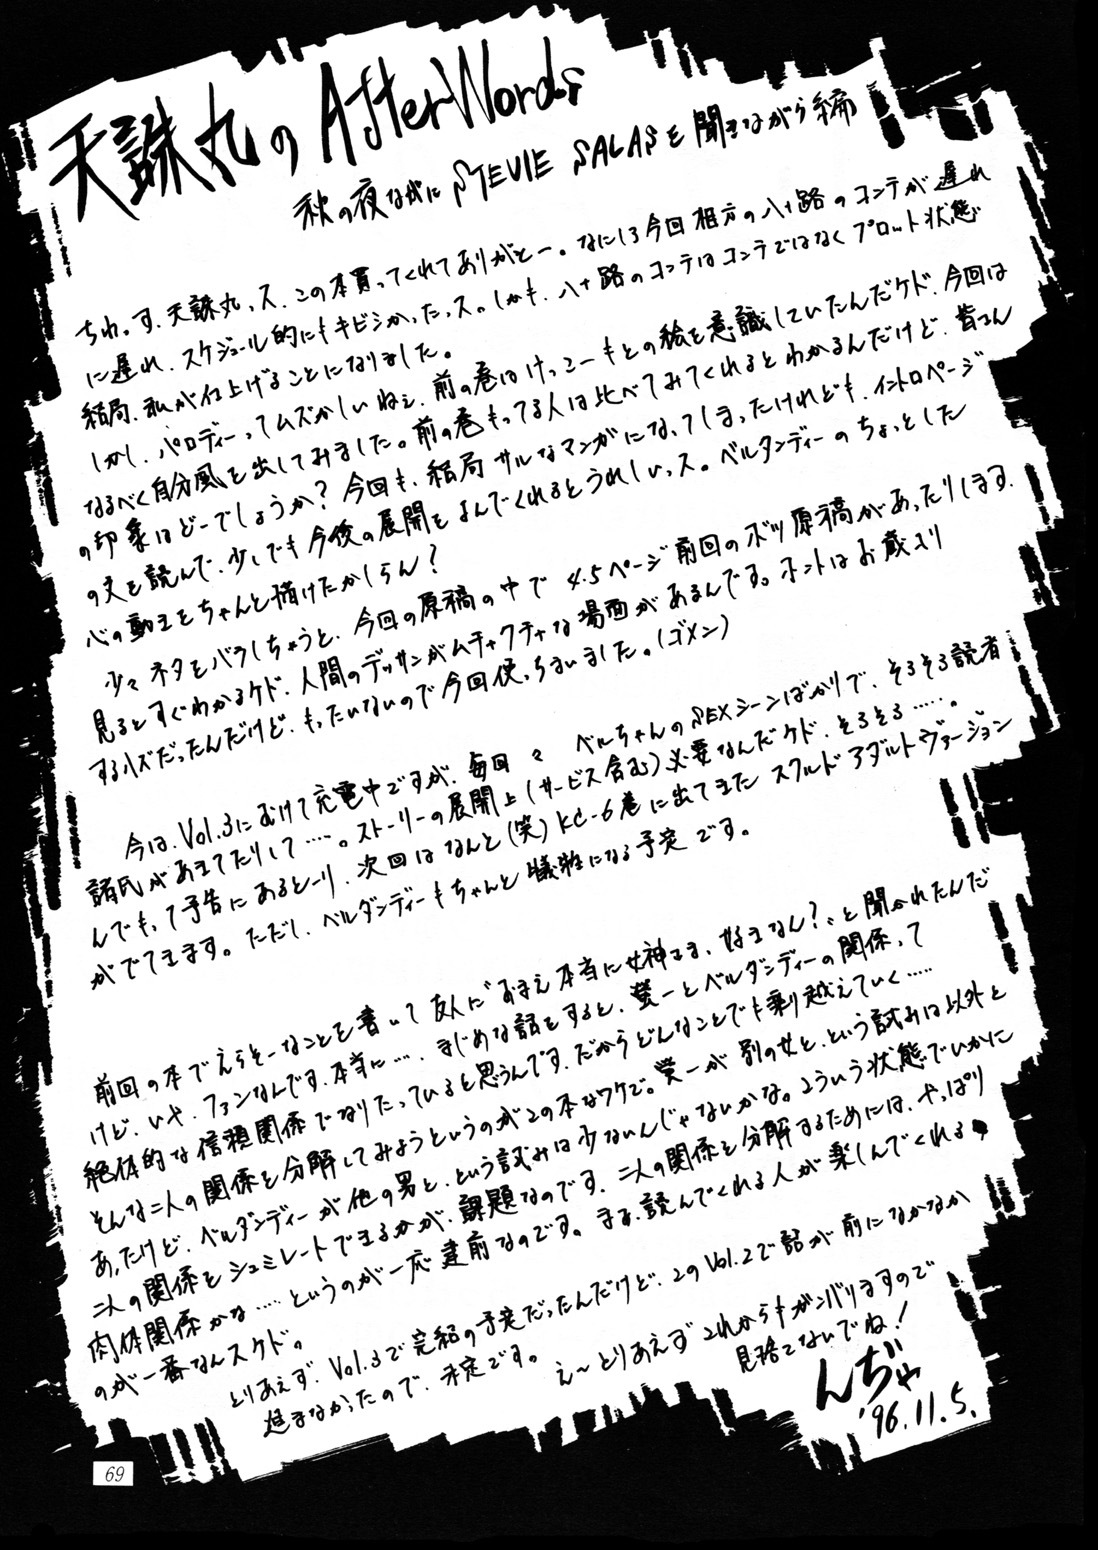 天誅丸の AfterWords
秋の夜ながに STEVIE SALASを聞きながら編
ちわっす、天誅丸っス、この本買ってくれてありがとー。なにしろ今回相方の八十路のコンテが遅れ
に遅れ、スケジュール的にもキビシかったっス。しかも、八十路のコンテはコンテではなくプロット状態
結局、私が仕上げることになりました。
しかし、パロディーってムズかしいねェ、前の巻はけっこーもとの絵を意識していたんだケド、今回は
なるべく自分風を出してみました。前の巻もってる人は比べてみてくれるとわかるんだけど、皆さん
の印象はどーでしょうか？今回も、結局サルなマンガになってしまったけれども、イントロページ
の文を読んで、少しでも今後の展開をよんでくれるとうれしいっス。ベルダンディーのちょっとした
心の動きをちゃんと描けたかしらん？
少々ネタをバラしちゃうと、今回の原稿の中で 4.5ページ前回のボツ原稿があったりします。
見るとすぐわかるケド、人間のデッサンがムチャクチャな場面があるんです。ホントはお蔵入り
するハズだったんだけど、もったいないので今回使っちまいました。（ゴメン）
今は、Vol.3にむけて充電中ですが、毎回々 ベルちゃんのSEXシーンばかりで、そろそろ読者
諸氏があきてたりして……。ストーリーの展開上（サービス含む）必要なんだケド、そろそろ……。
んでもって予告にあるとーり、次回はなんと（笑）KC-6巻に出てきた スクルド アダルトヴァージョン
がでてきます。ただし、ベルダンディーもちゃんと犠牲になる予定です。
前回の本でえらそーなことを書いて友人に“おまえ本当に女神さま、好きなん？”と聞かれたんだ
けど、いや、ファンなんです、本当に…。まじめな話をすると、螢一とベルダンディーの関係って
絶体的な信頼関係でなりたっていると思うんです、だからどんなことでも乗り越えていく……
そんな二人の関係を分解してみようというのがこの本なワケで。螢一が別の女と、という試みは以外と
あったけど、ベルダンディーが他の男と、という試みは少ないんじゃないかな。こういう状態でいかに
二人の関係をシュミレートできるかが、課題なのです、二人の関係を分解するためには、やっぱり
肉体関係かな……というのが一応建前なのです。まあ、読んでくれる人が楽しんでくれる
のが一番なんスケド。
とりあえず、Vol.3で完結の予定だったんだけど、このVol.2で話が前になかなか
進まなかったので、未定です。
え〜とりあえずこれからもガンバリますので
見捨てないでね！
んぢゃ
'96.11.5.
69